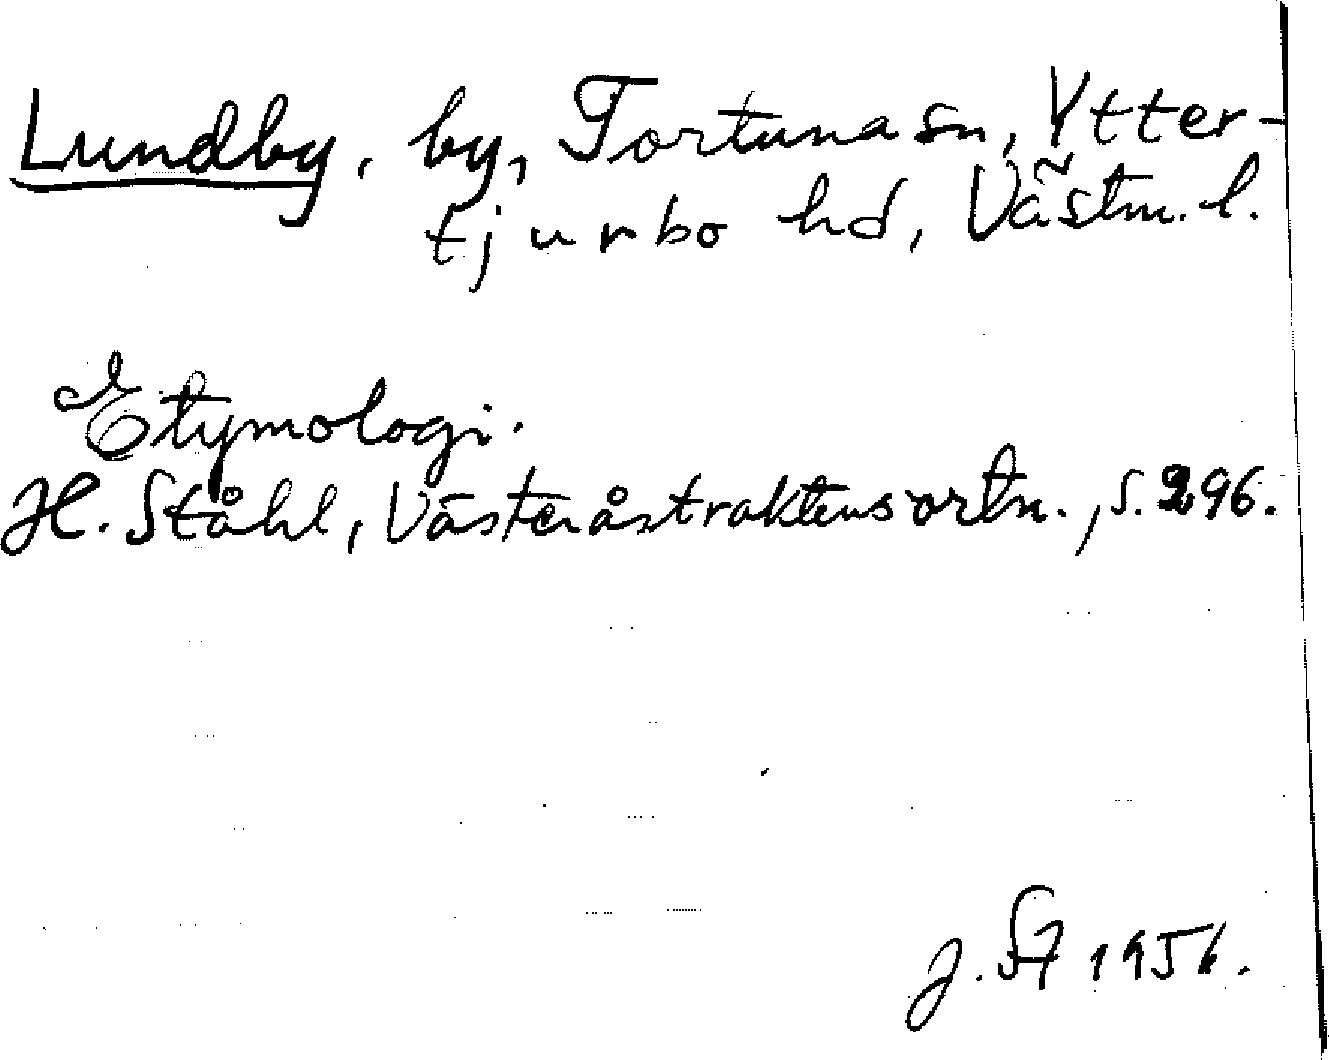 Lundby, by, Tortuna sn, Ytter-
tjurbo hd, Västm. l.
Etymologi.
H. Ståhl, Västeråstraktens ortn., s. 296.
J. St 1956.